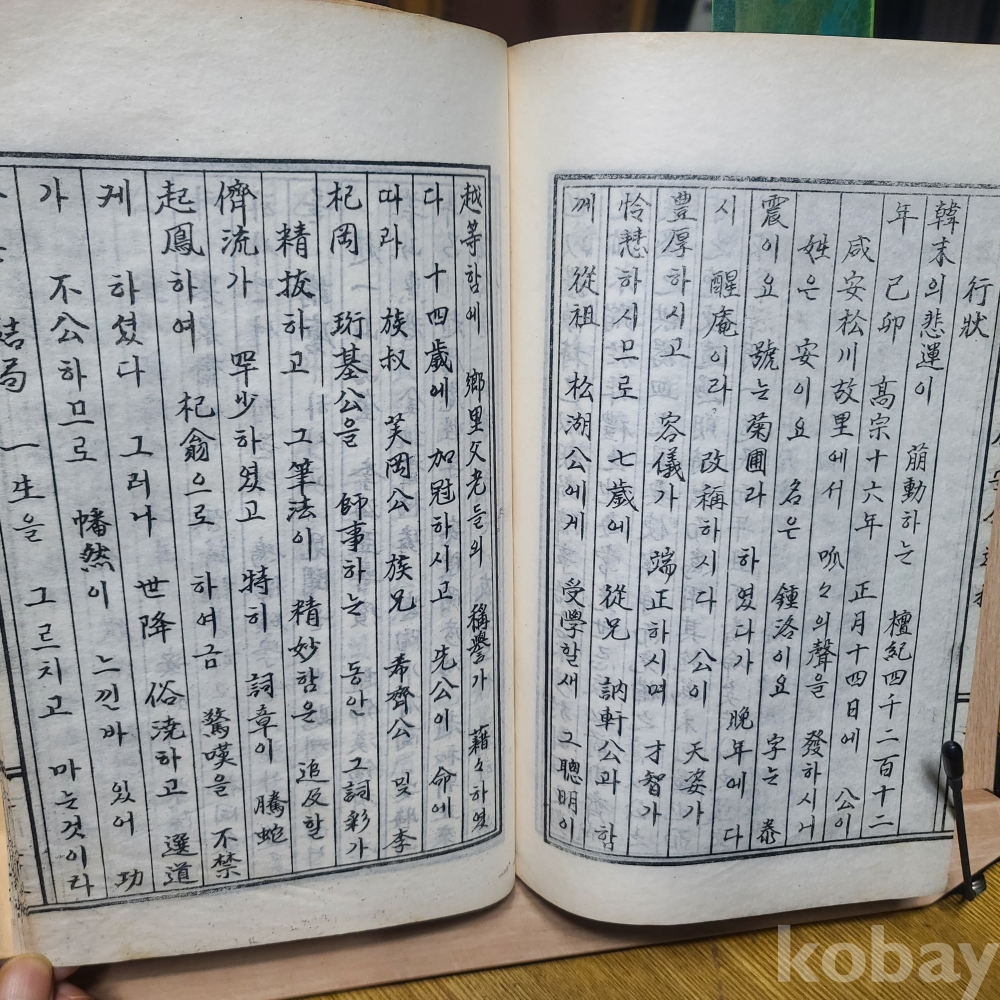 行狀
韓末의 悲運이 崩動하는 檀紀四千二百十二
年 己卯 高宗十六年 正月十四日에 公이
咸安松川故里에서 呱々의聲을 發하시니
姓은 安이요 名은 鍾洛이요 字는
震이요 號는 菊圃라 하였다가 晩年에 다
시 醒庵이라 改稱하시다 公이 天姿가
豊厚하시고 容儀가 端正하시며 才智가
怜慧하시므로 七歲에 從兄 訥軒公과 함
께 從祖 松湖公에게 受學할새 그聰明이
越等함에 鄕里父老들의 稱譽가 藉々하였
다 十四歲에 加冠하시고 先公이 命에
따라 族叔 芙岡公 族兄 希齊公 및 李
杞岡 珩基公을 師事하는 동안 그詞彩가
精抜하고 그筆法이 精妙함은 追及할
儕流가 罕少하였고 特히 詞章이 騰蛇
起鳳하여 杞翁으로 하여금 驚嘆을 不禁
케 하셨다 그러나 世降 俗渙하고 選道
가 不公하므로 幡然이 느낀바 있어 功
結局 一生을 그르치고 마는것이라
kobay